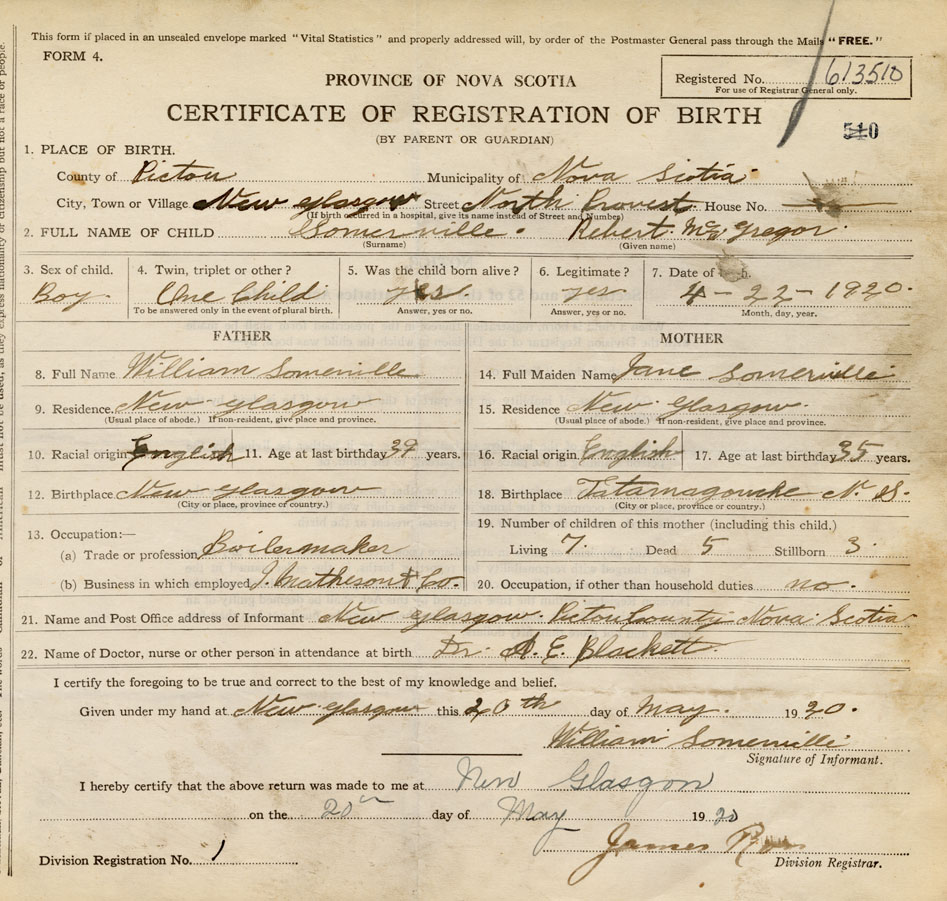 This form if placed in an unsealed envelope marked "Vital Statistics" and properly addressed will, by order of the Postmaster General pass through the Mails "FREE."
FORM 4.
PROVINCE OF NOVA SCOTIA
Registered No. 613510
For use of Registrar General only.
CERTIFICATE OF REGISTRATION OF BIRTH
(BY PARENT OR GUARDIAN)
510
1. PLACE OF BIRTH.
County of Pictou Municipality of Nova Scotia
City, Town or Village New Glasgow Street North Provost House No.
(If birth occurred in a hospital, give its name instead of Street and Number)
2. FULL NAME OF CHILD Somerville. Robert McGregor.
(Surname) (Given name)
3. Sex of child. 4. Twin, triplet or other? 5. Was the child born alive? 6. Legitimate? 7. Date of
Boy. One Child yes yes 4-22-1920.
To be answered only in the event of plural birth. Answer, yes or no. Answer, yes or no. Month, day, year.
FATHER MOTHER
8. Full Name William Somerville 14. Full Maiden Name Jane Somerville
9. Residence. New Glasgow 15. Residence New Glasgow.
(Usual place of abode.) If non-resident, give place and province. (Usual place of abode.) If non-resident, give place and province.
10. Racial origin English 11. Age at last birthday 39 years. 16. Racial origin English 17. Age at last birthday 35 years.
12. Birthplace New Glasgow 18. Birthplace Tatamagouche N. S.
(City or place, province or country.) (City or place, province or country.)
13. Occupation:— 19. Number of children of this mother (including this child.)
(a) Trade or profession Boilermaker Living 7. Dead 5 Stillborn 3.
(b) Business in which employed I. Matheson & Co. 20. Occupation, if other than household duties no.
21. Name and Post Office address of Informant New Glasgow Pictou County Nova Scotia
22. Name of Doctor, nurse or other person in attendance at birth Dr. A. E. Blackett.
I certify the foregoing to be true and correct to the best of my knowledge and belief.
Given under my hand at New Glasgow this 20th day of May. 1920.
William Somerville
Signature of Informant.
I hereby certify that the above return was made to me at New Glasgow
on the 20th day of May 1920
James
Division Registration No. 1 Division Registrar.